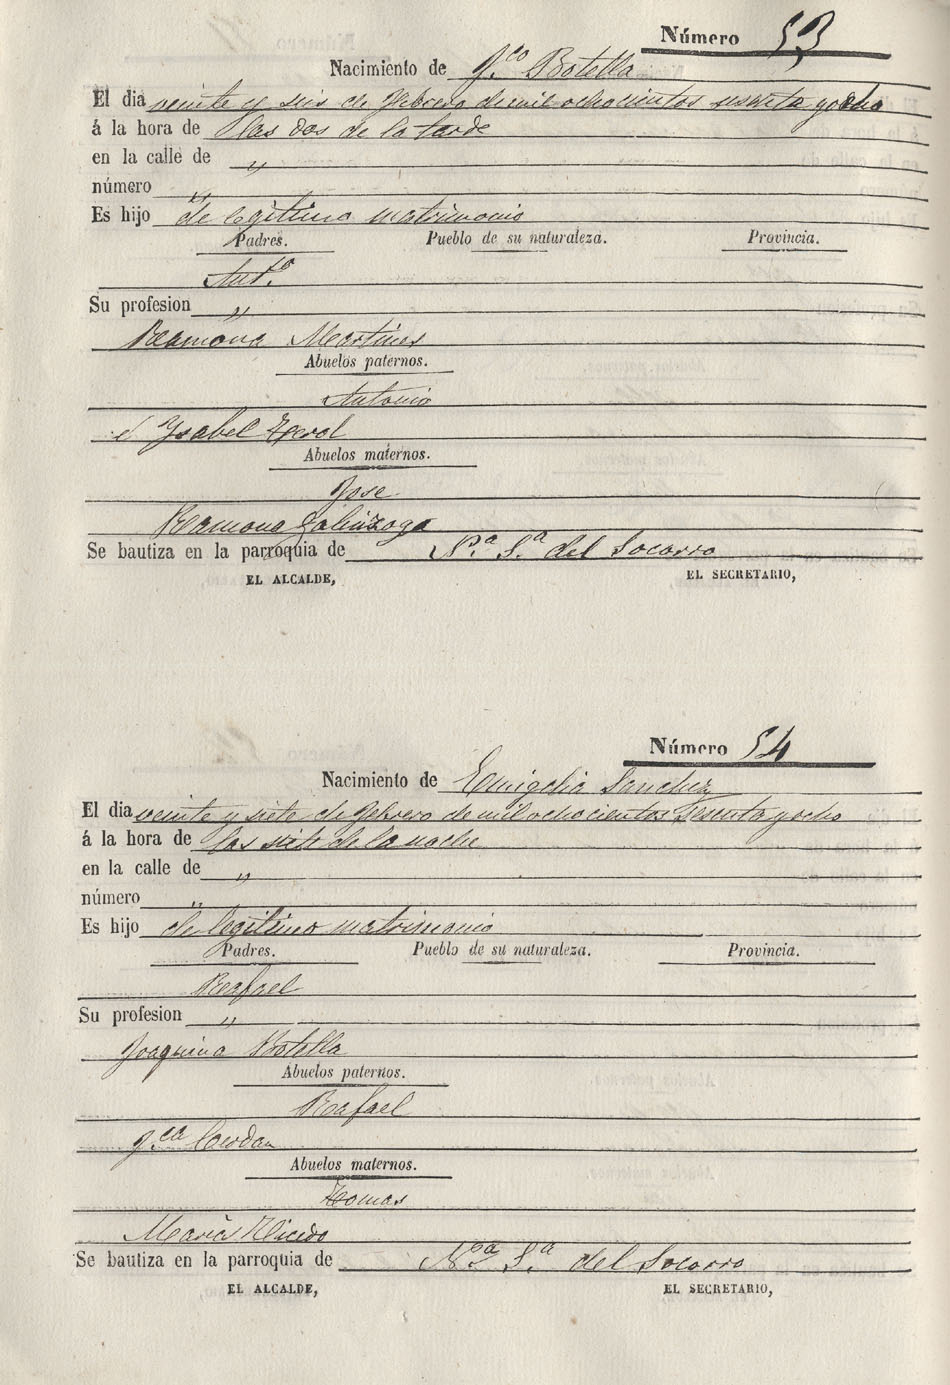 Número 53
Nacimiento de F.co Botella
El dia veinte y seis de Febrero de mil ochocientos sesenta y ocho
á la hora de las dos de la tarde
en la calle de „
número „
Es hijo de legitimo matrimonio
Padres. Pueblo de su naturaleza. Provincia.
Ant.o
Su profesion „
Ramona Martines
Abuelos paternos.
Antonio
é Ysabel Terol
Abuelos maternos.
Jose
Ramona Galinzoga
Se bautiza en la parroquia de N.a S.a del Socorro
EL ALCALDE, EL SECRETARIO,
Número 54
Nacimiento de Emigdia Sanchez
El dia veinte y siete de Febrero de mil ochocientos sesenta y ocho
á la hora de las siete de la noche
en la calle de „
número „
Es hijo de legitimo matrimonio
Padres. Pueblo de su naturaleza. Provincia.
Rafael
Su profesion „
Joaquina Botella
Abuelos paternos.
Rafael
F.ca Cerdan
Abuelos maternos.
Tomas
Maria
Se bautiza en la parroquia de N.a S.a del Socorro
EL ALCALDE, EL SECRETARIO,